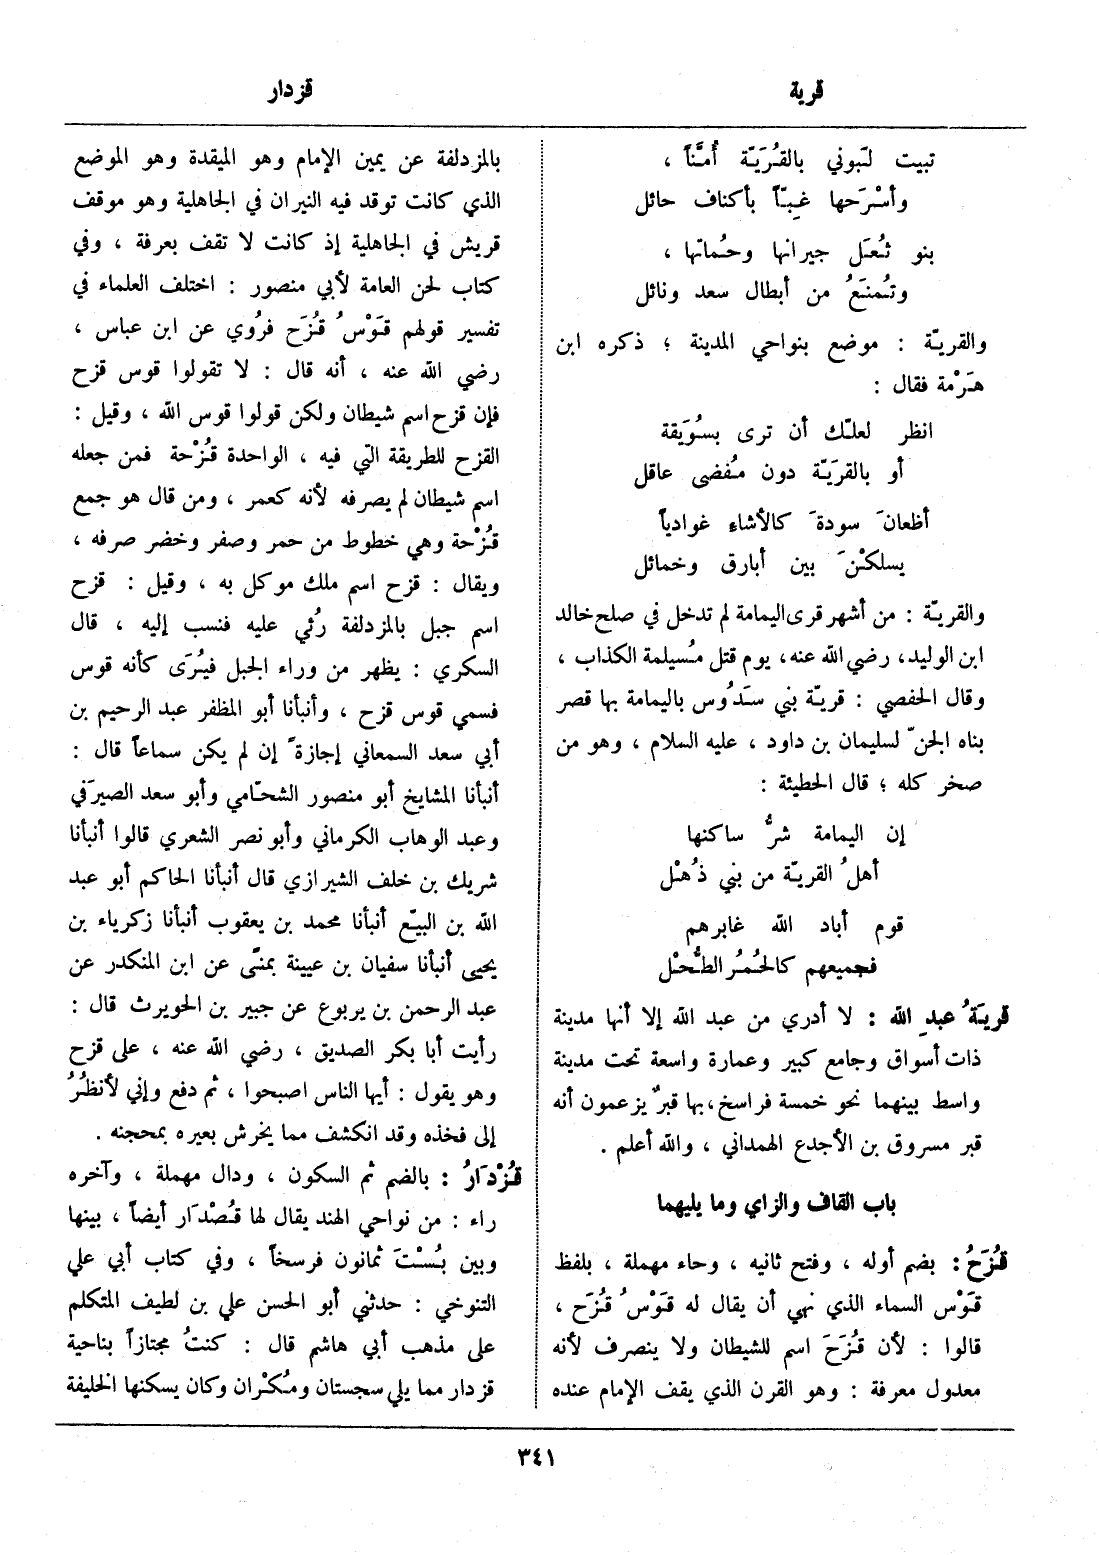 قرية
قزدار
تبيت لَبوني بالقُرَيّة أُمَّناً ،
وأسْرَحها غِبّاً بأكناف حائل
بنو ثُعَل جيرانها وحُماتها ،
وتُمنَعُ من أبطال سعد ونائل
والقريّة : موضع بنواحي المدينة ؛ ذكره ابن
هَرْمة فقال :
انظر لعلّك أن ترى بسُوَيقة
أو بالقرَيّة دون مُفضى عاقل
أظعانَ سودةَ كالأشاء غوادياً
يسلكْنَ بين أبارق وخمائل
والقريّة : من أشهر قرى اليمامة لم تدخل في صلح خالد
ابن الوليد، رضي الله عنه، يوم قتل مُسيلمة الكذاب ،
وقال الحفصي : قريّة بني سَدُوس باليمامة بها قصر
بناه الجنّ لسليمان بن داود ، عليه السلام ، وهو من
صخر كله ؛ قال الحطيئة :
إن اليمامة شرُّ ساكنها
أهلُ القريّة من بني ذُهْل
قوم أباد الله غابرهم
فجميعهم كالحُمُر الطُّحْل
قريَةُ عبدِ الله : لا أدري من عبد الله إلا أنها مدينة
ذات أسواق وجامع كبير وعمارة واسعة تحت مدينة
واسط بينهما نحو خمسة فراسخ، بها قبرٌ يزعمون أنه
قبر مسروق بن الأجدع الهمداني ، والله أعلم .
باب القاف والزاي وما يليهما
قُزَحُ : بضم أوله ، وفتح ثانيه ، وحاء مهملة ، بلفظ
قَوْس السماء الذي نهي أن يقال له قَوْسُ قُزَح ،
قالوا : لأن قُزَحَ اسم للشيطان ولا ينصرف لأنه
معدول معرفة : وهو القرن الذي يقف الإمام عنده
بالمزدلفة عن يمين الإمام وهو الميقدة وهو الموضع
الذي كانت توقد فيه النيران في الجاهلية وهو موقف
قريش في الجاهلية إذ كانت لا تقف بعرفة ، وفي
كتاب لحن العامة لأبي منصور : اختلف العلماء في
تفسير قولهم قَوْسُ قُزَح فرُوي عن ابن عباس ،
رضي الله عنه ، أنه قال : لا تقولوا قوس قزح
فإن قزح اسم شيطان ولكن قولوا قوس الله ، وقيل :
القزح للطريقة التي فيه ، الواحدة قُزْحة فمن جعله
اسم شيطان لم يصرفه لأنه كعمر ، ومن قال هو جمع
قُزْحة وهي خطوط من حمر وصفر وخضر صرفه ،
ويقال : قزح اسم ملك موكل به ، وقيل : قزح
اسم جبل بالمزدلفة رُئي عليه فنسب إليه ، قال
السكري : يظهر من وراء الجبل فيُرَى كأنه قوس
فسمي قوس قزح ، وأنبأنا أبو المظفر عبد الرحيم بن
أبي سعد السمعاني إجازةً إن لم يكن سماعاً قال :
أنبأنا المشايخ أبو منصور الشحّامي وأبو سعد الصيرَفي
وعبد الوهاب الكرماني وأبو نصر الشعري قالوا أنبأنا
شريك بن خلف الشيرازي قال أنبأنا الحاكم أبو عبد
الله بن البيّع أنبأنا محمد بن يعقوب أنبأنا زكرياء بن
يحيى أنبأنا سفيان بن عيينة بمنًى عن ابن المنكدر عن
عبد الرحمن بن يربوع عن جبير بن الحويرث قال :
رأيت أبا بكر الصديق ، رضي الله عنه ، على قزح
وهو يقول : أيها الناس اصبحوا ، ثم دفع وإني لأنظُرُ
إلى فخذه وقد انكشف مما يخرش بعيره بمحجنه .
قُزْدَارُ : بالضم ثم السكون ، ودال مهملة ، وآخره
راء : من نواحي الهند يقال لها قُصْدَار أيضاً ، بينها
وبين بُسْتَ ثمانون فرسخاً ، وفي كتاب أبي علي
التنوخي : حدثني أبو الحسن علي بن لطيف المتكلم
على مذهب أبي هاشم قال : كنتُ مجتازاً بناحية
قزدار مما يلي سجستان ومُكْران وكان يسكنها الخليفة
٣٤١